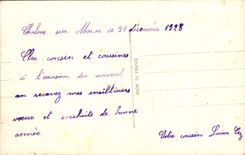 Chalons sur Marne le 31 décembre 1928
Cher cousin et cousines
à l'occasion du nouvel
an recevez mes meilleurs
voeux et souhaits de bonne
année
Votre cousin